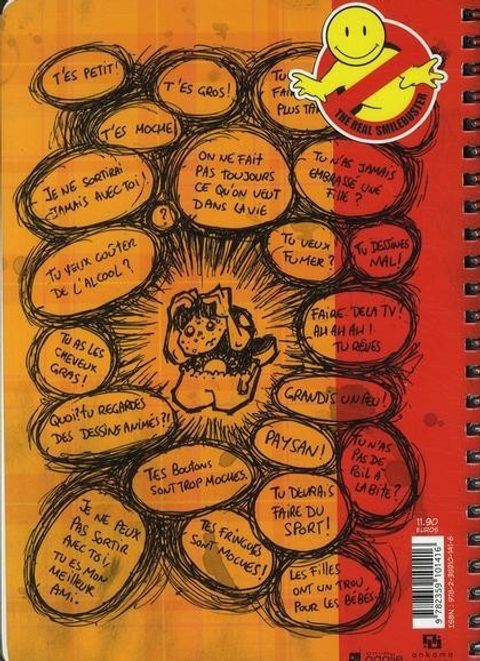 T'ES PETIT!
T'ES GROS!
TU
FAIR
PLUS TAR
THE REAL SMILEBUSTER
T'ES MOCHE
JE NE SORTIRAI
JAMAIS AVEC TOI
?
ON NE FAIT
PAS TOUJOURS
CE QU'ON VEUT
DANS LA VIE
TU N'AS JAMAIS
EMBRASSÉ UNE
FILLE?
TU VEUX GOÛTER
DE L'ALCOOL?
TU VEUX
FUMER?
TU DESSINES
MAL!
TU AS LES
CHEVEUX
GRAS!
FAIRE DE LA TV!
AH AH AH!
TU RÊVES
GRANDIS UN PEU!
QUOI? TU REGARDES
DES DESSINS ANIMÉS?!
PAYSAN!
TU N'AS
PAS DE
POIL A
LA BITE?
TES BOUTONS
SONT TROP MOCHES.
TU DEVRAIS
FAIRE DU
SPORT!
JE NE PEUX
PAS SORTIR
AVEC TOI,
TU ES MON
MEILLEUR
AMI.
TES FRINGUES
SONT MOCHES!
LES FILLES
ONT UN TROU
POUR LES BÉBÉS...
11.90
EUROS
9 782359 101416
ISBN : 978-2-35910-141-6
ankama